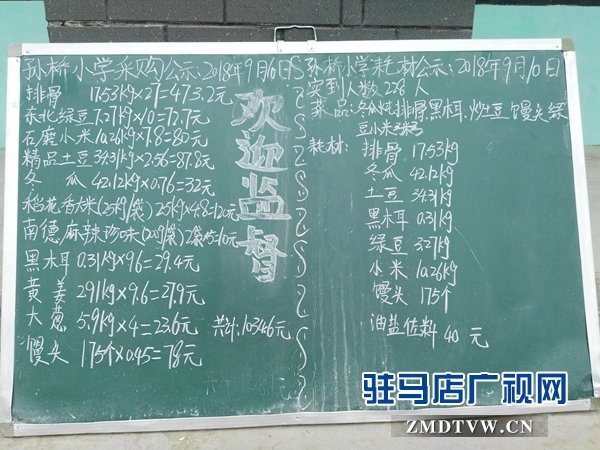 孙桥小学采购公示:2018年9月10日
排骨 17.53kg×27=473.2元
东北绿豆 7.27kg×10=72.7元
石磨小米 10.26kg×7.8=80元
精品土豆 34.31kg×2.56=87.8元
冬 瓜 42.12kg×0.76=32元
稻花香大米(25kg/袋)25kg×4.8=120元
南德麻辣珍味(200g/袋)2袋×5=10元
黑木耳 0.31kg×96=29.4元
黄姜 2.91kg×9.6=27.9元
大葱 5.9kg×4=23.6元 共计:1034.6元
馒头 175个×0.45=78元
欢迎监督
孙桥小学耗材公示:2018年9月10日
实到人数:228人
菜品:冬瓜炖排骨黑木耳.炒土豆 馒头绿
豆小米粥
耗材:排骨 17.53kg
冬瓜 42.12kg
土豆 34.31kg
黑木耳 0.31kg
绿豆 3.27kg
小米 10.26kg
馒头 175个
油盐佐料 40 元
驻马店广视网
ZMDTVW.CN